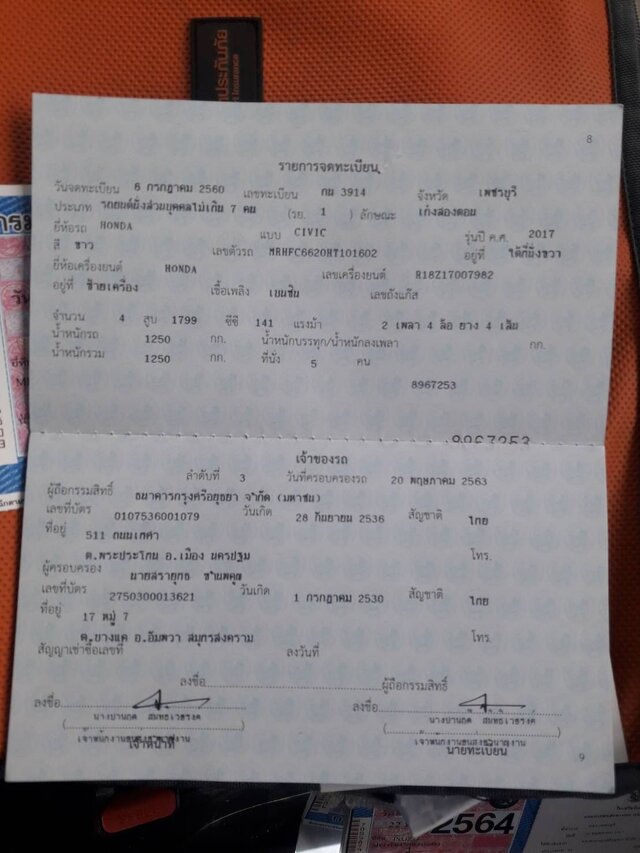 ประกันภัย
Insurance
8
รายการจดทะเบียน
วันจดทะเบียน 6 กรกฎาคม 2560 เลขทะเบียน กน 3914 จังหวัด เพชรบุรี
ประเภท รถยนต์นั่งส่วนบุคคลไม่เกิน 7 คน (รย. 1 ) ลักษณะ เก๋งสองตอน
ยี่ห้อรถ HONDA แบบ CIVIC รุ่นปี ค.ศ. 2017
สี ขาว เลขตัวรถ MRHFC6620HT101602 อยู่ที่ ใต้ที่นั่งขวา
ยี่ห้อเครื่องยนต์ HONDA เลขเครื่องยนต์ R18Z17007982
อยู่ที่ ซ้ายเครื่อง เชื้อเพลิง เบนซิน เลขถังแก๊ส
จำนวน 4 สูบ 1799 ซีซี 141 แรงม้า 2 เพลา 4 ล้อ ยาง 4 เส้น
น้ำหนักรถ 1250 กก. น้ำหนักบรรทุก/น้ำหนักลงเพลา กก.
น้ำหนักรวม 1250 กก. ที่นั่ง 5 คน
8967253
8967253
เจ้าของรถ
ลำดับที่ 3 วันที่ครอบครองรถ 20 พฤษภาคม 2563
ผู้ถือกรรมสิทธิ์ ธนาคารกรุงศรีอยุธยา จำกัด (มหาชน)
เลขที่บัตร 0107536001079 วันเกิด 28 กันยายน 2536 สัญชาติ ไทย
ที่อยู่ 511 ถนนเทศา
ต.พระประโทน อ.เมือง นครปฐม โทร.
ผู้ครอบครอง นายสรายุทธ ชำนพคุณ
เลขที่บัตร 2750300013621 วันเกิด 1 กรกฎาคม 2530 สัญชาติ ไทย
ที่อยู่ 17 หมู่ 7
ต.บางแค อ.อัมพวา สมุทรสงคราม โทร.
สัญญาเช่าซื้อเลขที่ ลงวันที่
ลงชื่อ ผู้ถือกรรมสิทธิ์
ลงชื่อ ลงชื่อ
เจ้าพนักงานขนส่งชำนาญงาน เจ้าพนักงานขนส่งชำนาญงาน
เจ้าหน้าที่ นายทะเบียน
9
2564